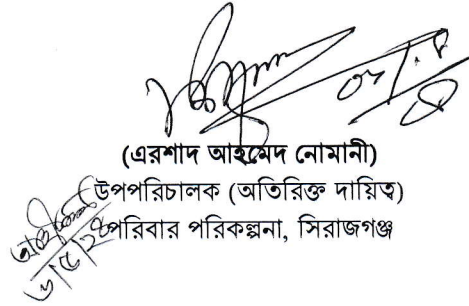 (এরশাদ আহমেদ নোমানী)
উপপরিচালক (অতিরিক্ত দায়িত্ব)
পরিবার পরিকল্পনা, সিরাজগঞ্জ